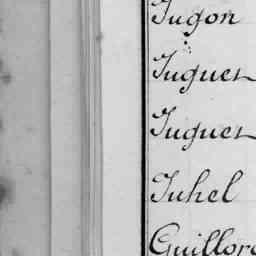 Jugon
Juguet
Juguet
Juhel
Guillor